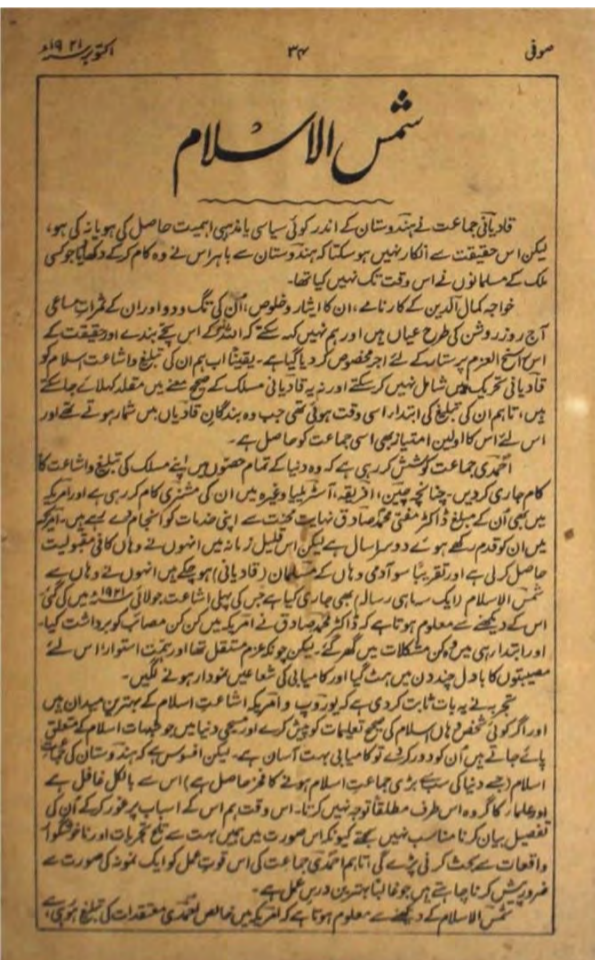 صوفی
۳۴
اکتوبر سنہ ۱۹۲۱ء
شمس الاسلام
قادیانی جماعت نے ہندوستان کے اندر کوئی سیاسی یا مذہبی اہمیت حاصل کی ہو یا نہ کی ہو،
لیکن اس حقیقت سے انکار نہیں ہو سکتا کہ ہندوستان سے باہر اس نے وہ کام کر کے دکھایا جو کسی
ملک کے مسلمانوں نے اس وقت تک نہیں کیا تھا۔
خواجہ کمال الدین کے کارنامے، ان کا ایثار و خلوص، اُن کی تگ و دو اور ان کے ثمراتِ مساعی
آج روز روشن کی طرح عیاں ہیں اور ہم نہیں کہہ سکتے کہ اللہ کے اس سچے بندے اور حقیقت کے
اس راسخ العزم پرستار کے لئے اجر مخصوص کر دیا گیا ہے۔ یقیناً اب ہم ان کی تبلیغ و اشاعت اسلام کو
قادیانی تحریک میں شامل نہیں کر سکتے اور نہ یہ قادیانی مسلک کے صحیح معنے میں مقلد کہلائے جا سکتے
ہیں، تاہم ان کی تبلیغ کی ابتدا اسی وقت ہوئی تھی جب وہ بندگانِ قادیاں میں شمار ہوتے تھے اور
اس لئے اس کا اولین امتیاز بھی اسی جماعت کو حاصل ہے۔
احمدی جماعت کوشش کر رہی ہے کہ وہ دنیا کے تمام حصتوں میں اپنے مسلک کی تبلیغ و اشاعت کا
کام جاری کر دیں۔ چنانچہ چین، افریقہ، آسٹریلیا وغیرہ میں ان کی مشنری کام کر رہی ہے اور امریکہ
میں بھی اُن کے مبلغ ڈاکٹر مفتی محمد صادق نہایت محنت سے اپنی خدمات کو انجام دے رہے ہیں۔ امریکہ
میں ان کو قدم رکھے ہوئے دوسرا سال ہے لیکن اس قلیل زمانہ میں انہوں نے وہاں کافی مقبولیت
حاصل کر لی ہے اور تقریباً سو آدمی وہاں کے مسلمان (قادیانی) ہو چکے ہیں انہوں نے وہاں سے
شمس الاسلام (ایک سہ ماہی رسالہ) بھی جاری کیا ہے جس کی پہلی اشاعت جولائی سنہ ۱۹۲۱ء میں کی گئی
اس کے دیکھنے سے معلوم ہوتا ہے کہ ڈاکٹر محمد صادق نے امریکہ میں کن کن مصائب کو برداشت کیا۔
اور ابتدا ہی میں وہ کن مشکلات میں گھر گئے۔ لیکن چونکہ عزم مستقل تھا اور ہمت استوار اس لئے
مصیبتوں کا بادل چند دن میں ہٹ گیا اور کامیابی کی شعاعیں نمودار ہونے لگیں۔
تجربہ نے یہ بات ثابت کر دی ہے کہ یوروپ و امریکہ اشاعتِ اسلام کے بہترین میدان ہیں
اور اگر کوئی شخص وہاں اسلام کی صحیح تعلیمات کو پیش کرے اور مسیحی دنیا میں جو شبہات اسلام کے متعلق
پائے جاتے ہیں اُن کو دور کر دے تو کامیابی بہت آسان ہے۔ لیکن افسوس ہے کہ ہندوستان کی جماعت
اسلام (جسے دنیا کی سب سے بڑی جماعتِ اسلام ہونے کا فخر حاصل ہے) اس سے بالکل غافل ہے
اور علماء کا گروہ اس طرف مطلقاً توجہ نہیں کرتا۔ اس وقت ہم اس کے اسباب پر غور کر کے اُن کی
تفصیل بیان کرنا مناسب نہیں سمجھتے کیونکہ اس صورت میں ہمیں بہت سے تلخ تجربات اور ناخوشگوار
واقعات سے بحث کرنی پڑے گی تاہم احمدی جماعت کی اس قوتِ عمل کو ایک نمونہ کی صورت سے
ضرور پیش کرنا چاہتے ہیں جو غالباً بہترین درسِ عمل ہے۔
شمس الاسلام کے دیکھنے سے معلوم ہوتا ہے کہ امریکہ میں خالص احمدی معتقدات کی تبلیغ ہو رہی ہے،